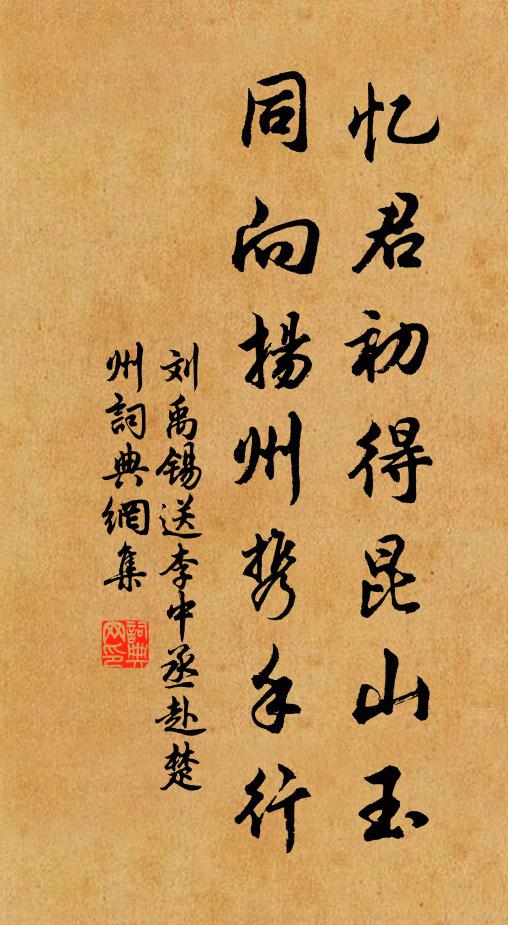 忆君初得昆山玉
同向揚州携手行
刘禹锡送李中丞赴楚
州詞典網集
詞典
网印